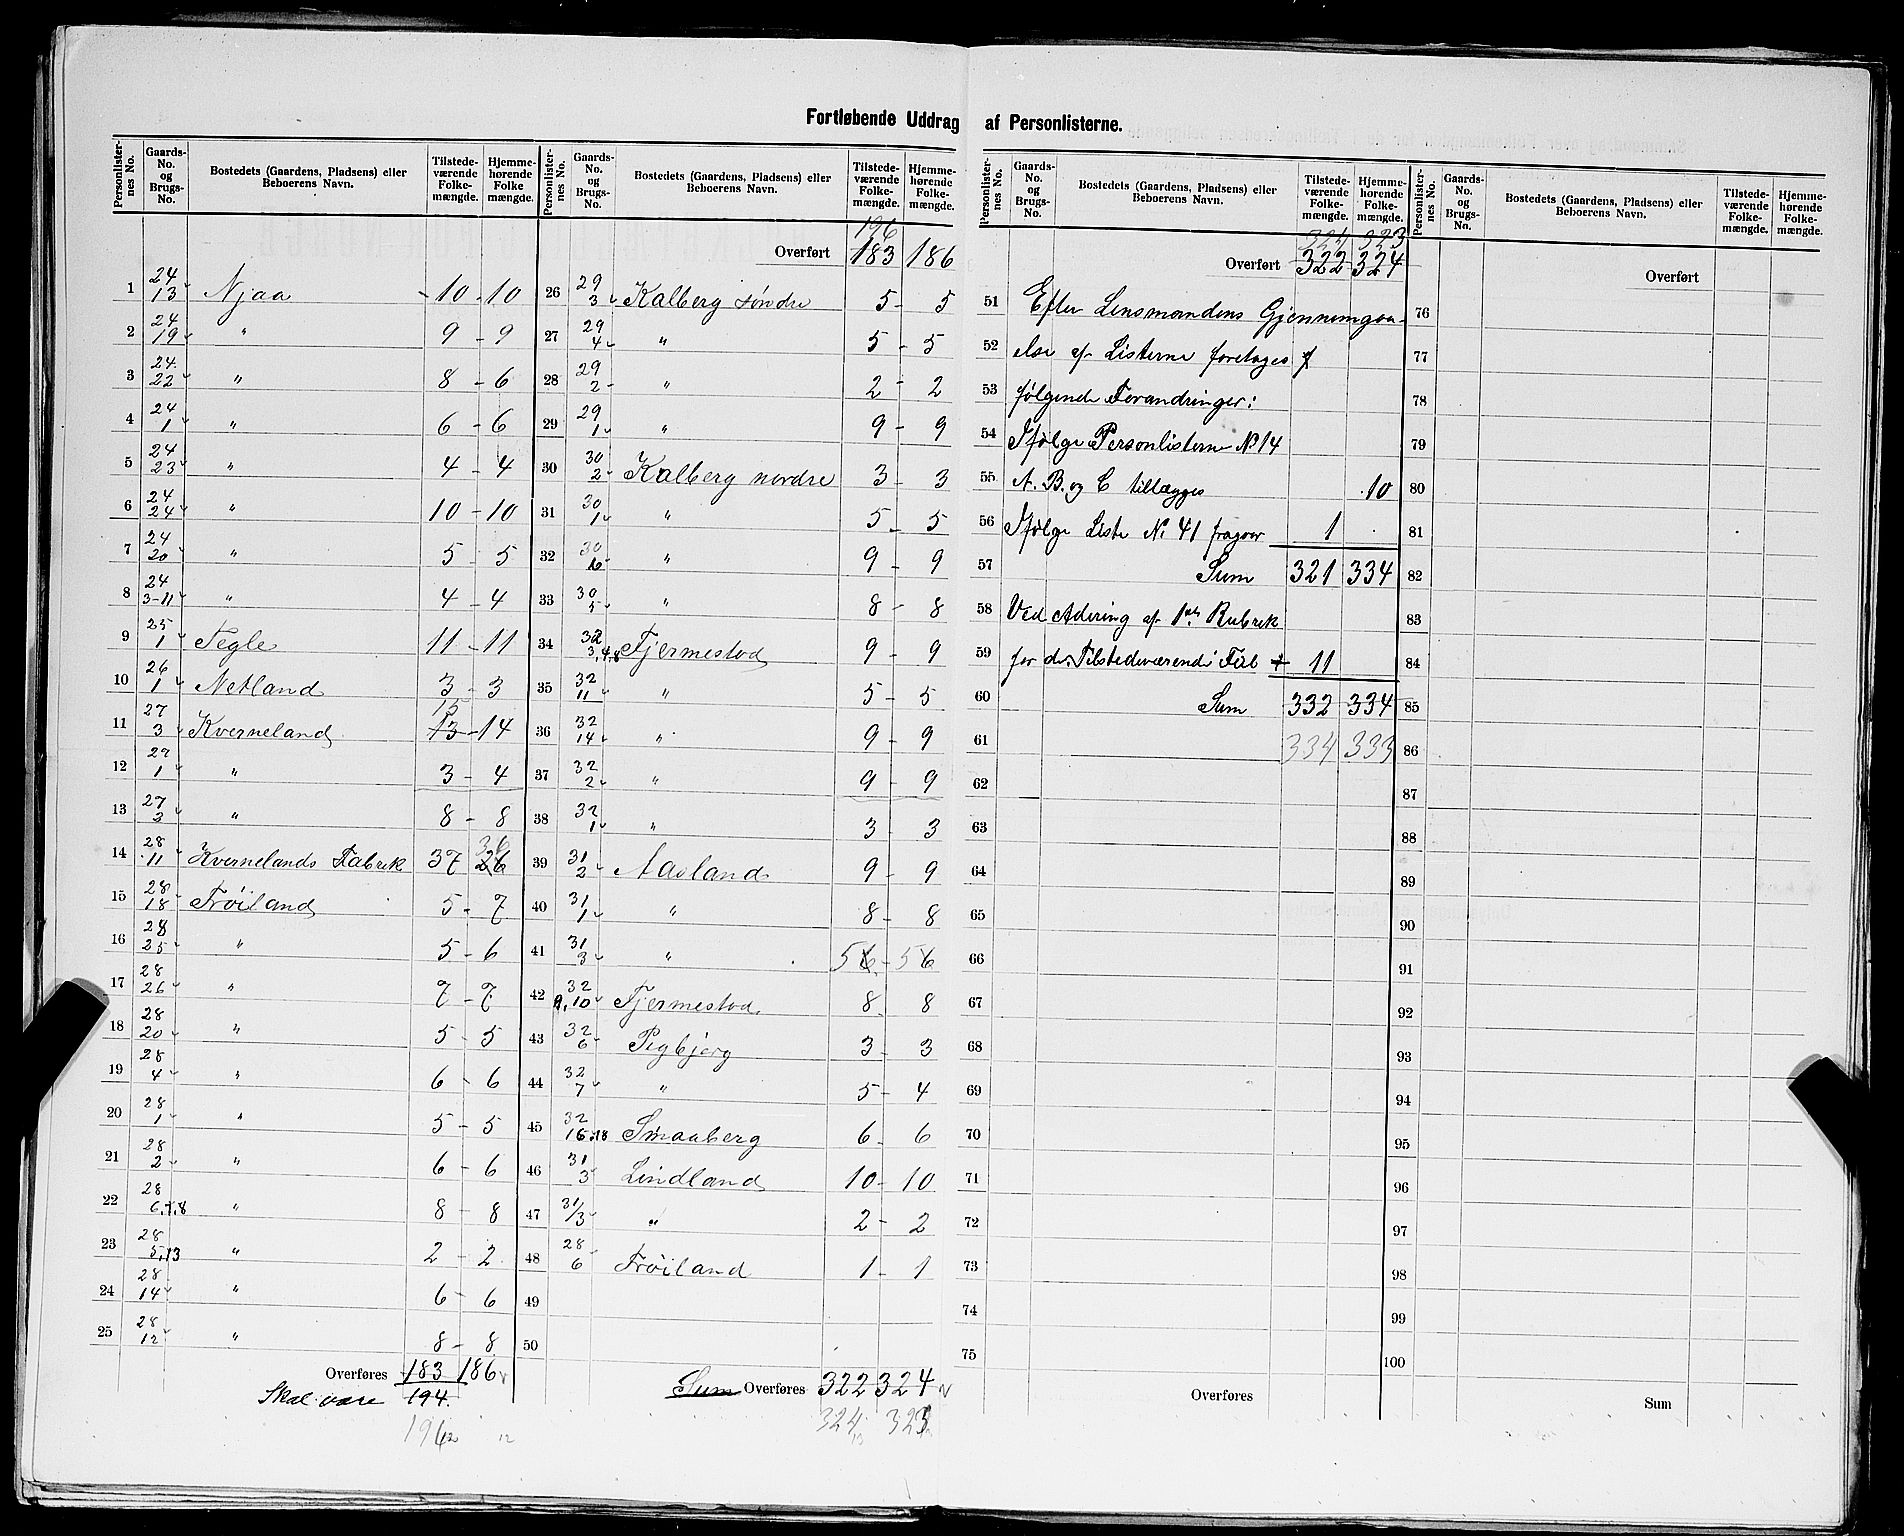 Fortløbende Uddrag af Personlisterne.
Personlister-nes No. | Gaards-No. og Brugs-No. | Bostedets (Gaardens, Pladsens) eller Beboerens Navn. | Tilstede-værende Folke-mængde. | Hjemme-hørende Folke mængde.
1 24/13 Njaa 10 - 10
2 24/19 " 9 - 9
3 24/22 " 8 - 6
4 24/1 " 6 - 6
5 24/23 " 4 - 4
6 24/24 " 10 - 10
7 24/20 " 5 - 5
8 24/3-11 " 4 - 4
9 25/1 Tegle 11 - 11
10 26/1 Netland 3 - 3
11 27/3 Kverneland 13 15 - 14
12 27/1 " 3 - 4
13 27/2 " 8 - 8
14 28/11 Kvernelands Fabrik 37 26 36
15 28/18 Frøiland 5 - 7
16 28/25 " 5 - 6
17 28/26 " 7 - 7
18 28/20 " 5 - 5
19 28/4 " 6 - 6
20 28/1 " 5 - 5
21 28/2 " 6 - 6
22 28/6,7,8 " 8 - 8
23 28/5,13 " 2 - 2
24 28/14 " 6 - 6
25 28/12 " 8 - 8
Overføres 183 186
Skal være 194.
196
Personlister-nes No. | Gaards-No. og Brugs-No. | Bostedets (Gaardens, Pladsens) eller Beboerens Navn. | Tilstede-værende Folke-mængde. | Hjemme-hørende Folke-mængde.
196
Overført 183 186
26 29/3 Kalberg søndre 5 - 5
27 29/4 " 5 - 5
28 29/2 " 2 - 2
29 29/1 " 9 - 9
30 30/2 Kalberg nordre 3 - 3
31 30/1 " 5 - 5
32 30/6 " 9 - 9
33 30/5 " 8 - 8
34 32/3,4,8 Fjermestad 9 - 9
35 32/11 " 5 - 5
36 32/14 " 9 - 9
37 32/2 " 9 - 9
38 32/1 " 3 - 3
39 31/2 Aasland 9 - 9
40 31/1 " 8 - 8
41 31/3 " 5 6 - 5 6
42 32/9,10 Fjermestad 8 8
43 32/6 Pigbjerg 3 - 3
44 32/7 " 5 - 4
45 32/16,18 Smaaberg 6 - 6
46 31/3 Lindland 10 - 10
47 31/3 " 2 - 2
48 28/6 Frøiland 1 - 1
49
50
Sum Overføres 322 324
324 323
Personlister-nes No. | Gaards-No. og Brugs-No. | Bostedets (Gaardens, Pladsens) eller Beboerens Navn. | Tilstede-værende Folke-mængde. | Hjemme-hørende Folke-mængde.
324 323
Overført 322 324
51 Efter Lensmandens Gjennemgaa-
52 else af Listerne foretages
53 følgende Forandringer:
54 Ifølge Personlisterne No 14
55 A. B. og C tillægges 10
56 Ifølge Liste No. 41 fragaar 1
57 Sum 321 334
58 Ved Adering af 1ste Rubrik
59 for de Tilstedeværende Feil + 11
60 Sum 332 334
61 334 333
62
63
64
65
66
67
68
69
70
71
72
73
74
75
Overføres
Personlister-nes No. | Gaards-No. og Brugs-No. | Bostedets (Gaardens, Pladsens) eller Beboerens Navn. | Tilstede-værende Folke-mængde. | Hjemme-hørende Folke-mængde.
Overført
76
77
78
79
80
81
82
83
84
85
86
87
88
89
90
91
92
93
94
95
96
97
98
99
100
Sum